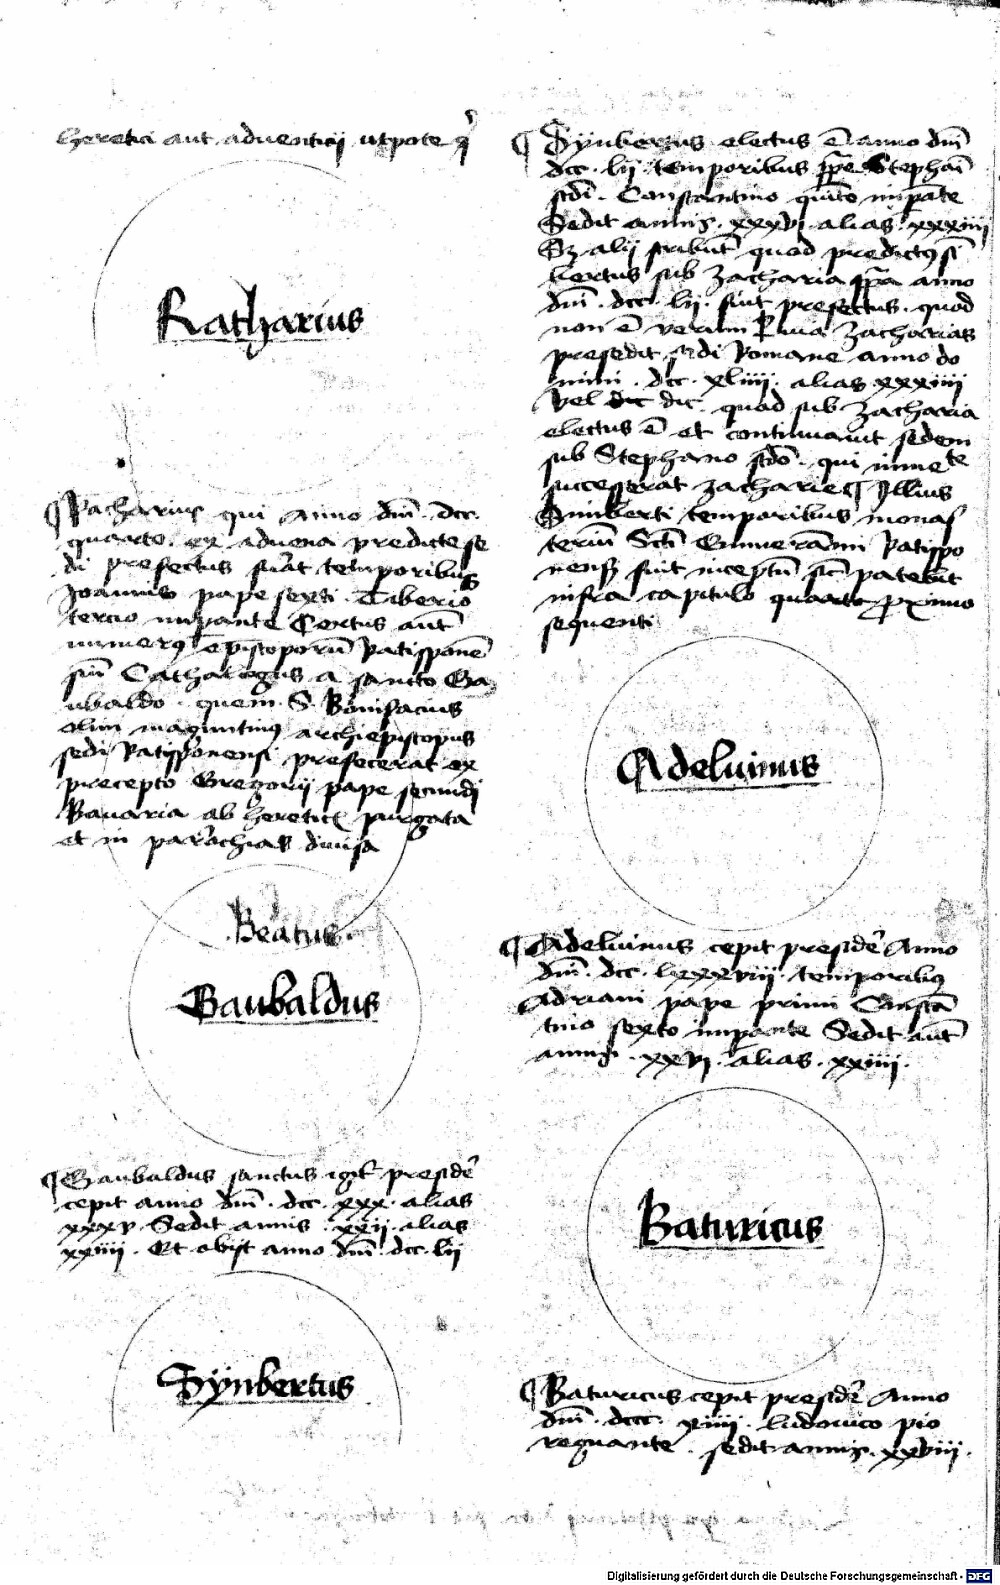 heretici aut adventicij utpote q̄
Ratharius
¶ Racharius qui anno dm̄ . dcc.
quarto . ex advena predicte se
di prefectus fuit temporibus
Joannis pape sexti . Tiberio
tercio imp̄ante Certus aut̄
numerꝰ ep̄iscoporū Ratisponē
siū Cathalogus a sancto Ga
ubaldo . quem . S . Bonifacius
olim maguntinꝰ archiepiscopus
sedi Ratisponensi prefecerat ex
precepto Gregorij pape secundi
Bavaria ab heretic̄ purgata
et in parochias divisa
.Beatus.
Gaubaldus
¶ Gaubaldus sanctus igit̄ presidē
cepit anno dm̄ . dcc . xxx . alias
xxxv . Sedit annis . xxij . alias
xxiiii . Et obijt anno dm̄ . dcc . lij
Sÿnbertus
¶ Sÿnbertus electus ē anno dm̄
dcc . lij . temporibus pp̄e Stephani
scdī . Constantino quīto imp̄ate
Sedit annis . xxxvj . alias . xxxiiii
Sz alij scribunt̄ quod predictꝰ si
bertus sub Zacharia pp̄a anno
dm̄ . dcc . lij . fuit prefectus . quod
non ē verum Quia Zacharias
presedit sedi Romane anno do
mini . dcc . xliiii . alias xxxiiii
Vel dic . quod sub Zacharia
electus ē et continuavit sedem
sub Stephano scdō . qui imme te
successerat Zacharie ¶ Illius
Sinberti temporibus monas
teriū Scti Emmerammi Ratispo
nens̄ fuit inceptū sic̄ patebit
infra capitulo quarto proximo
sequenti
Adelwinus
¶ Adelwinus cepit presidē Anno
dm̄ . dcc . lxxxviii . temporibꝰ
Adriani pape primi Constā
tino sexto imp̄ante Sedit aut̄
annis . xxvj . alias . xxiiii .
Baturicus
¶ Baturicus cepit presidē Anno
dm̄ . dccc . xiiii . ludovico pio
regnante . sedit annis . xxviii .
Digitalisierung gefördert durch die Deutsche Forschungsgemeinschaft - DFG